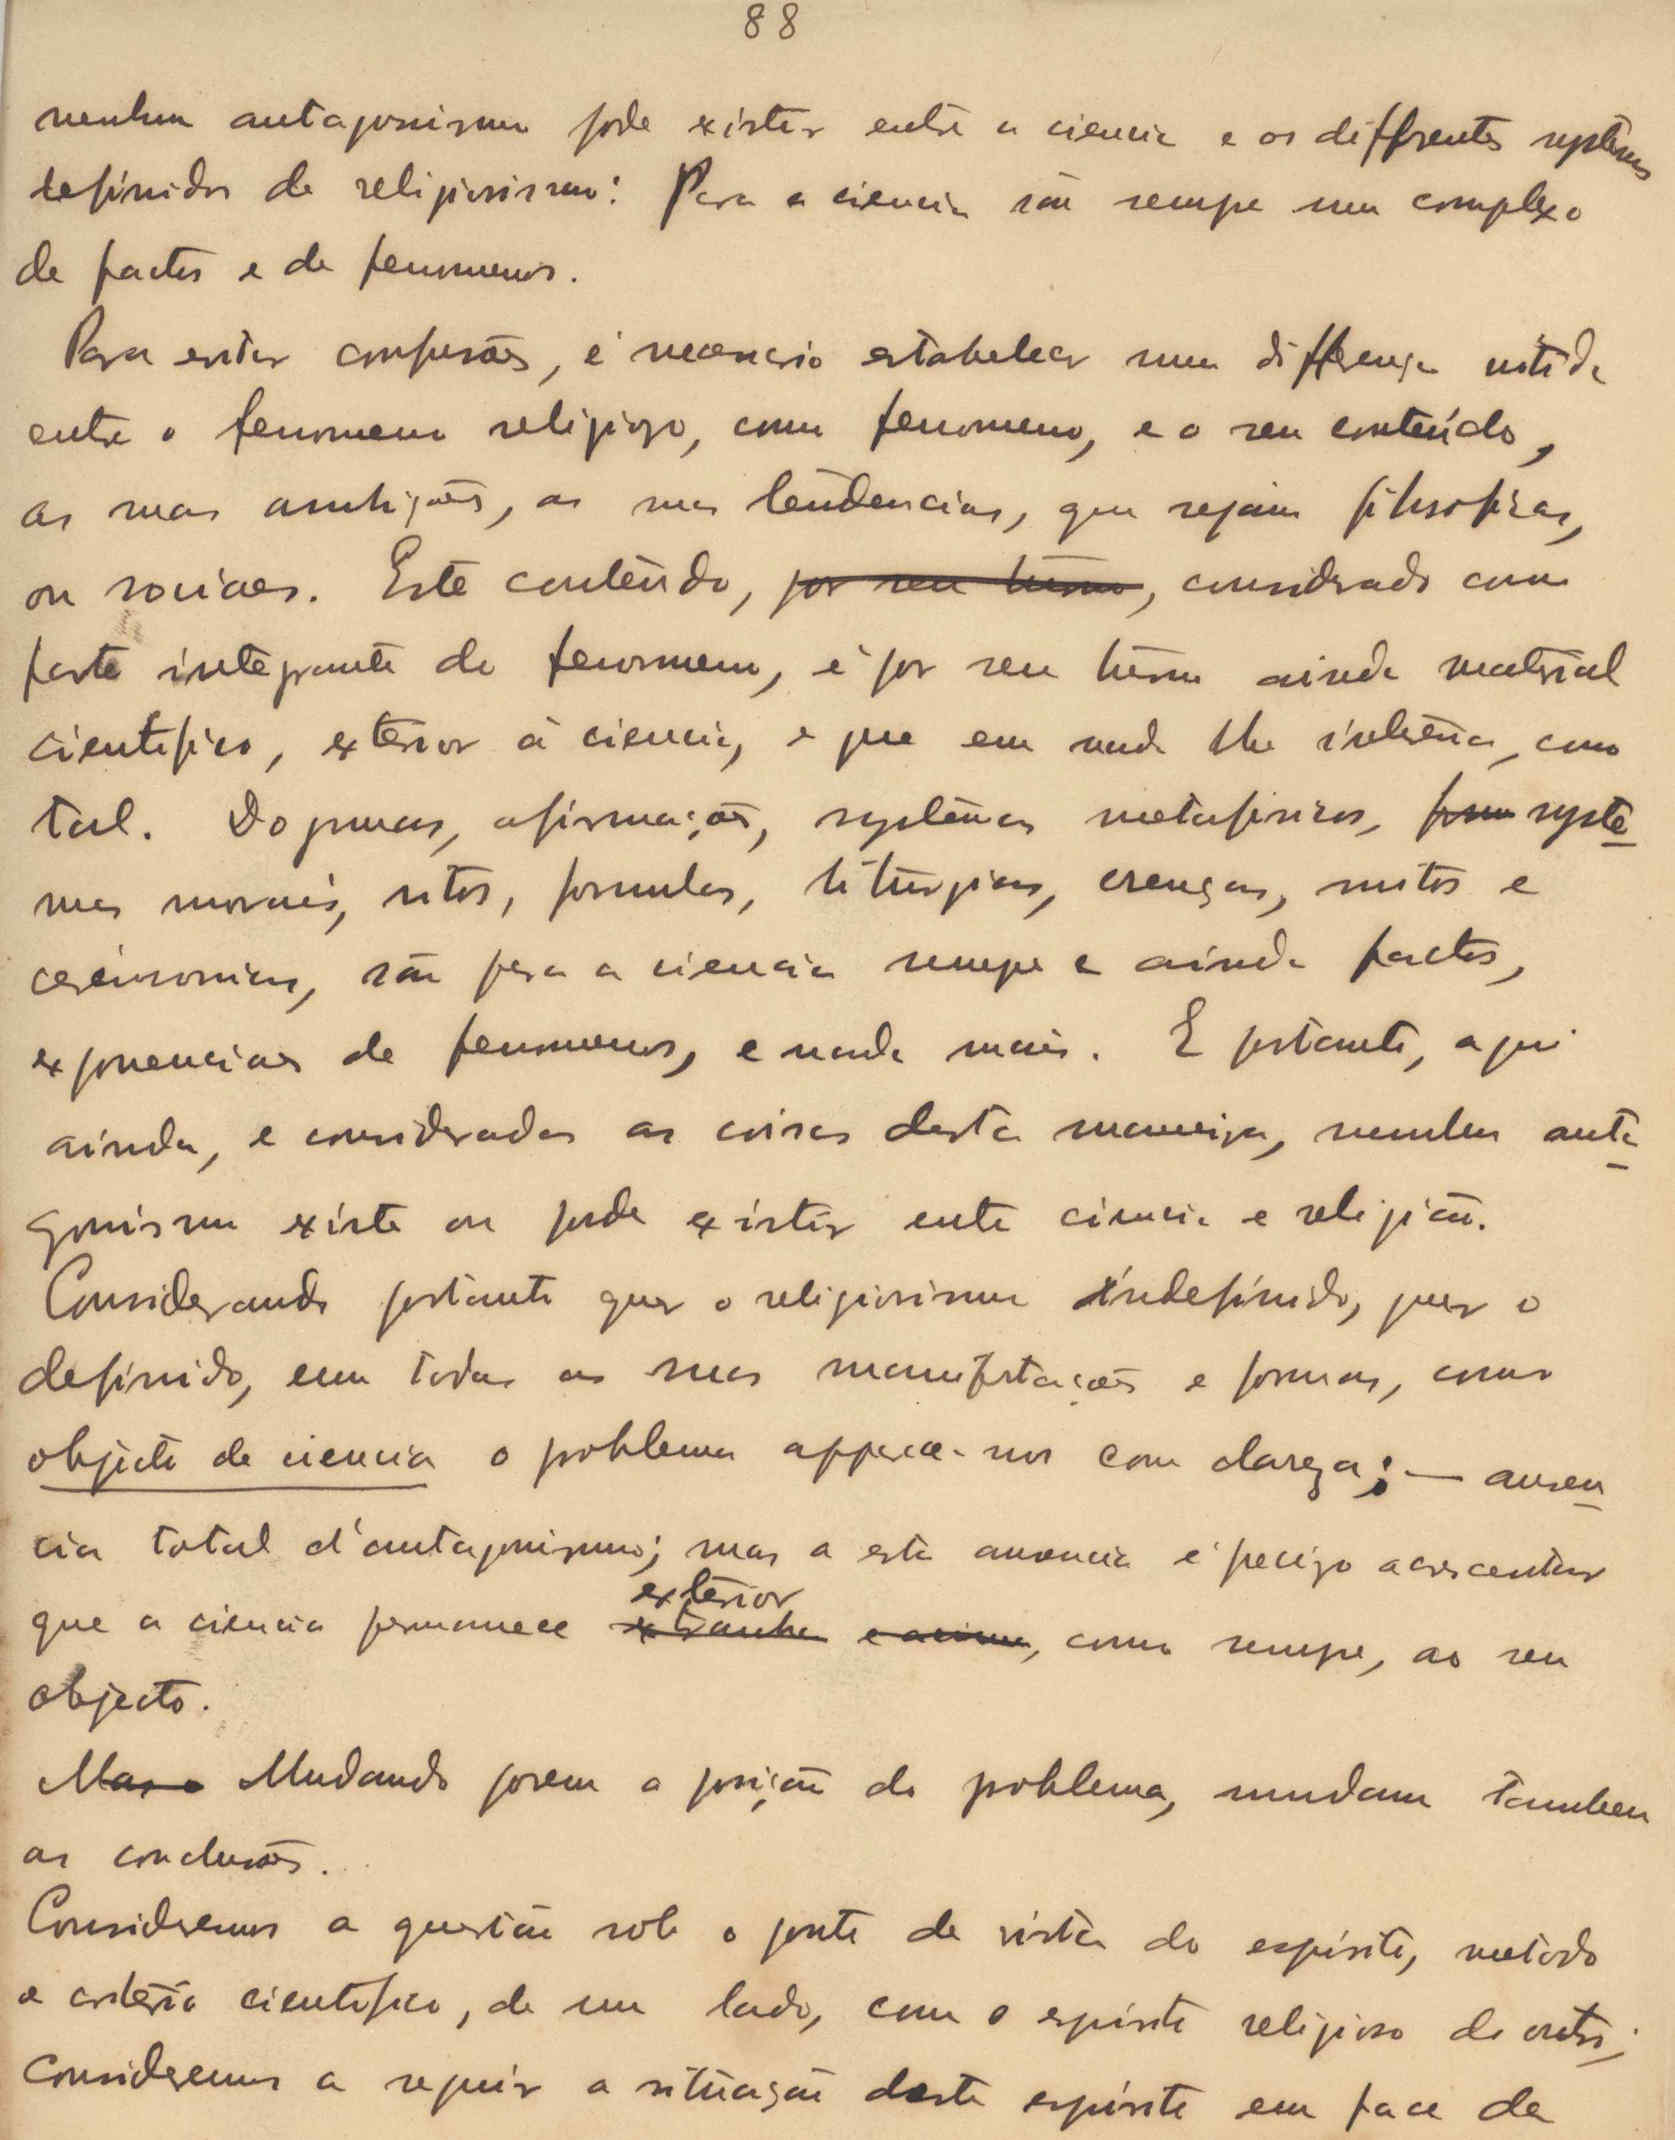 88
nenhum antagonismo pode existir entre a ciencia e os differentes systemas
definidos de religiosismo: Para a ciencia são sempre um complexo
de factos e de fenomenos.
Para evitar confusões, é necessario estabelecer uma differença nitida
entre o fenomeno religiozo, como fenomeno, e o seu conteúdo,
as suas ambições, as suas tendencias, quer sejam filosoficas,
ou sociaes. Este conteúdo, por seu turno, considerado como
parte integrante do fenomeno, é por seu turno ainda material
cientifico, exterior á ciencia, e que em nada lhe interessa, como
tal. Dogmas, afirmações, systemas metafisicos, form syste-
mas moraes, ritos, formulas, liturgias, crenças, mitos e
ceremonias, são para a ciencia sempre e ainda factos,
exponencias de fenomenos, e nada mais. E portanto, aqui
ainda, e consideradas as coisas desta maneira, nenhum anta-
gonismo existe ou pode existir entre ciencia e religião.
Considerando portanto quer o religiosismo indefinido, quer o
definido, em todas as suas manifestações e formas, como
objecto de ciencia o problema apparece-nos com clareza; — ausen-
cia total d'antagonismo; mas a esta ausencia é precizo acrescentar
que a ciencia permanece extranha e acima, como sempre, ao seu
exterior
objecto.
Mas o Mudando porem a posição do problema, mudam tambem
as conclusões.
Consideremos a questão sob o ponto de vista do espirito, metodo
e criterio cientifico, de um lado, com o espirito religioso do outro;
consideremos a seguir a situação deste espirito em face da